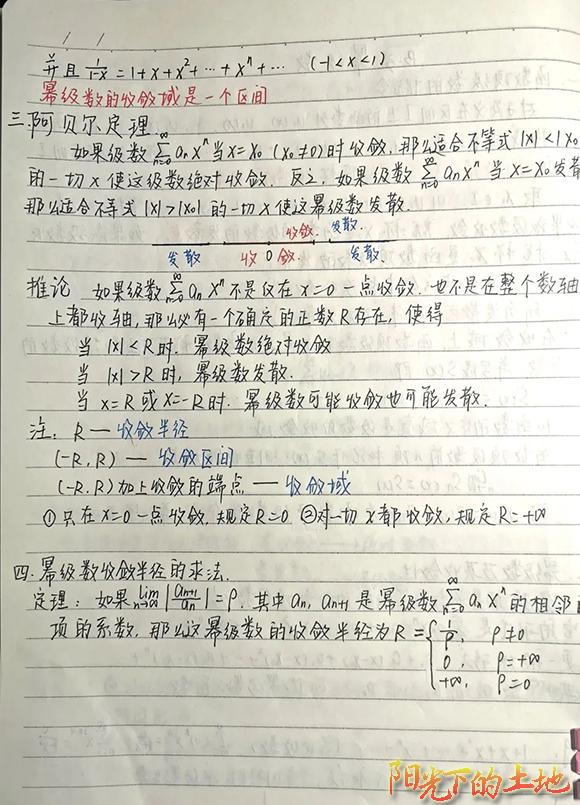 并且 1/(1-x) = 1+x+x²+…+xⁿ+… (-1<x<1)
幂级数的收敛域是一个区间
三.阿贝尔定理.
如果级数 ∑(n=0→∞) aₙxⁿ 当 x=x₀ (x₀≠0) 时收敛,那么适合不等式 |x|<|x₀
的一切 x 使这级数绝对收敛. 反之,如果级数 ∑(n=0→∞) aₙxⁿ 当 x=x₀ 发散
那么适合不等式 |x|>|x₀| 的一切 x 使这幂级数发散.
收敛. 发散.
发散 收 0 敛 发散.
推论 如果级数 ∑(n=0→∞) aₙxⁿ 不是仅在 x=0 一点收敛. 也不是在整个数轴
上都收轴,那么必有一个确定的正数R存在,使得
当 |x|<R 时. 幂级数绝对收敛
当 |x|>R 时,幂级数发散.
当 x=R 或 x=-R 时. 幂级数可能收敛也可能发散.
注: R — 收敛半径
(-R, R) — 收敛区间
(-R, R) 加上收敛的端点 — 收敛域
① 只在 x=0 一点收敛. 规定 R=0 ② 对一切 x 都收敛,规定 R=+∞
四.幂级数收敛半径的求法.
定理: 如果 lim(n→∞) |aₙ₊₁/aₙ| = ρ. 其中 aₙ, aₙ₊₁ 是幂级数 ∑(n=0→∞) aₙxⁿ 的相邻
项的系数,那么这幂级数的收敛半径为 R = { 1/ρ, ρ≠0
0, ρ=+∞
+∞, ρ=0
阳光下的土地